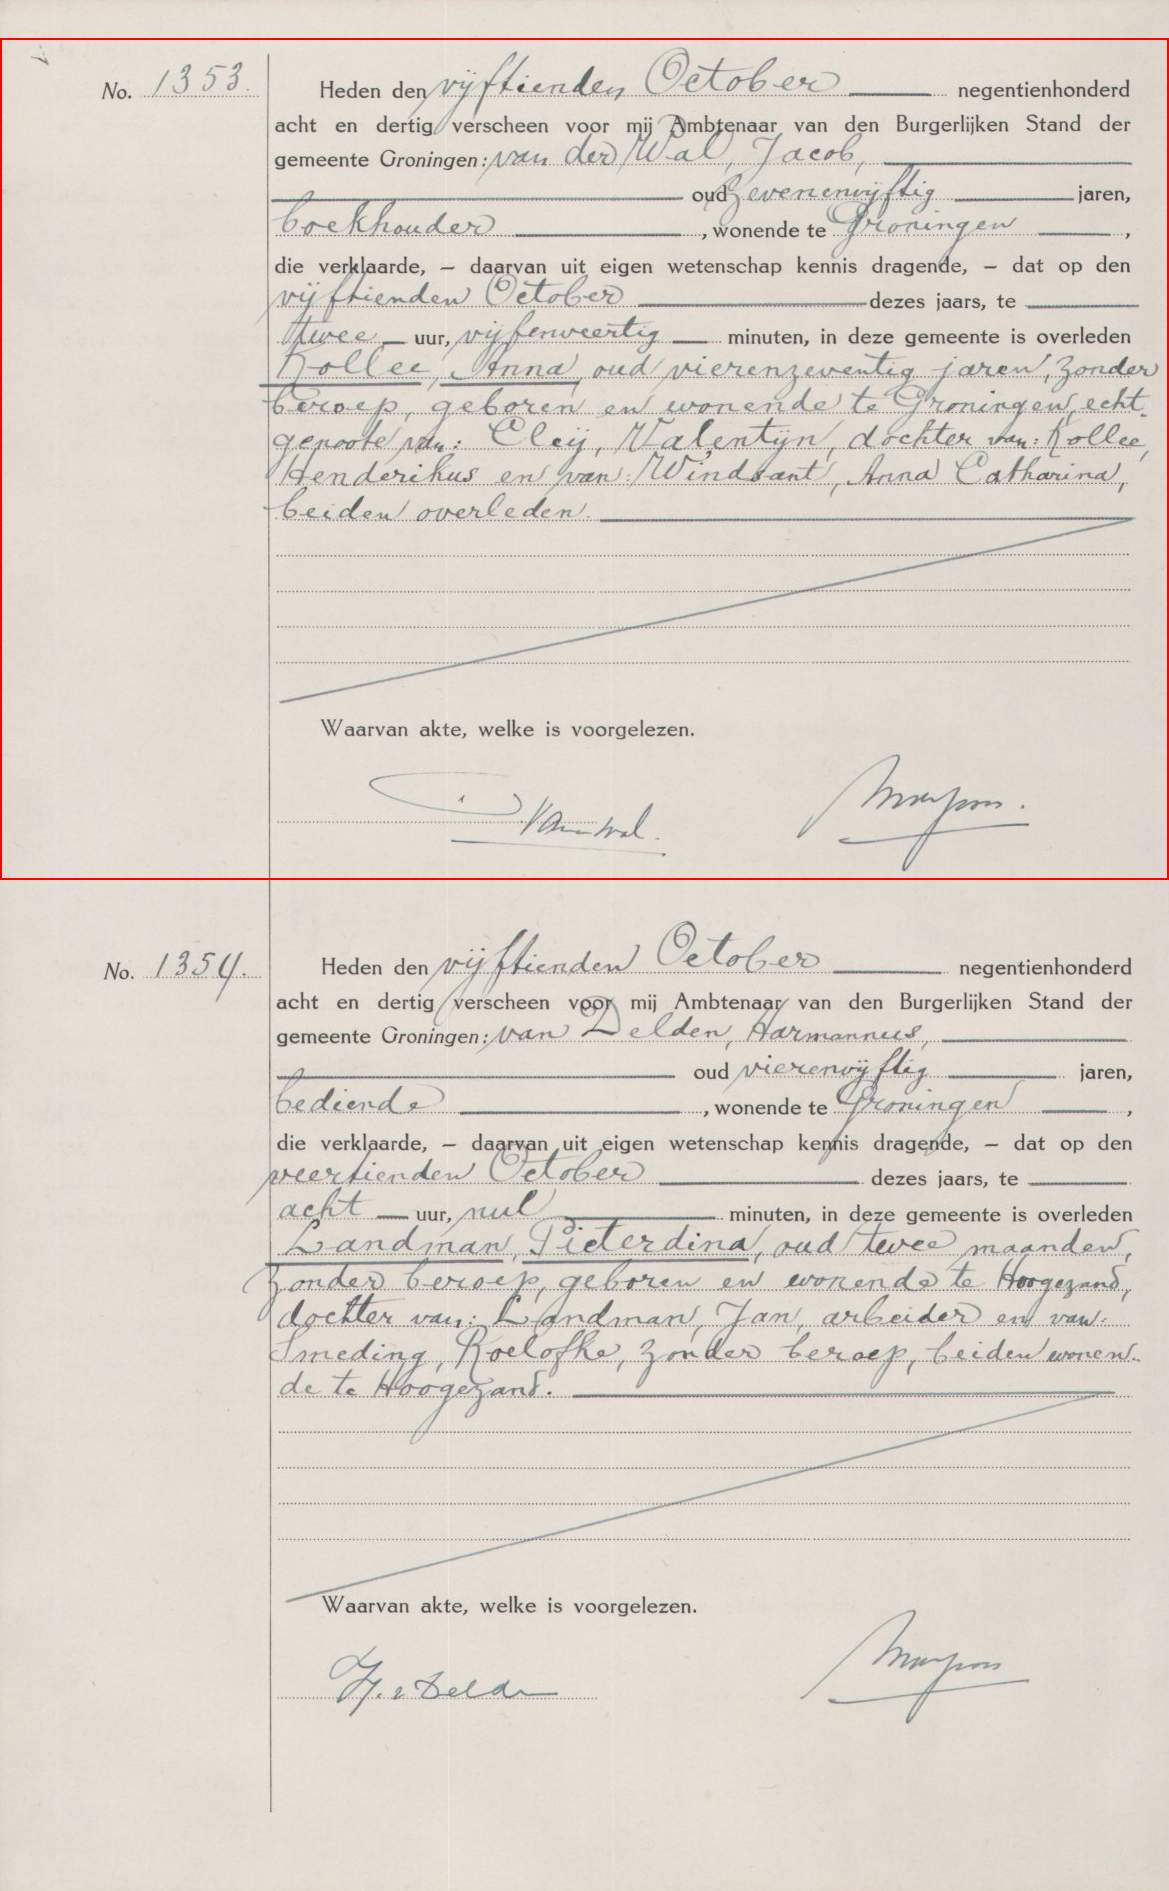 No. 1353.
Heden den vijftienden October negentienhonderd
acht en dertig verscheen voor mij Ambtenaar van den Burgerlijken Stand der
gemeente Groningen: van der Wal, Jacob,
oud zevenenvijftig jaren,
boekhouder, wonende te Groningen,
die verklaarde, – daarvan uit eigen wetenschap kennis dragende, – dat op den
vijftienden October dezes jaars, te
twee uur, vijfenveertig minuten, in deze gemeente is overleden
Kollee, Anna, oud vierenzeventig jaren, zonder
beroep, geboren en wonende te Groningen, echt-
genoote van: Cleij, Valentijn, dochter van: Kollee,
Henderikus en van: Windsant, Anna Catharina,
beiden overleden.
Waarvan akte, welke is voorgelezen.
No. 1354.
Heden den vijftienden October negentienhonderd
acht en dertig verscheen voor mij Ambtenaar van den Burgerlijken Stand der
gemeente Groningen: van Delden, Harmannus,
oud vierenvijftig jaren,
bediende, wonende te Groningen,
die verklaarde, – daarvan uit eigen wetenschap kennis dragende, – dat op den
veertienden October dezes jaars, te
acht uur, nul minuten, in deze gemeente is overleden
Landman, Pieterdina, oud twee maanden,
zonder beroep, geboren en wonende te Hoogezand,
dochter van: Landman, Jan, arbeider en van:
Smeding, Roelofke, zonder beroep, beiden wonen-
de te Hoogezand.
Waarvan akte, welke is voorgelezen.
H. v Delde